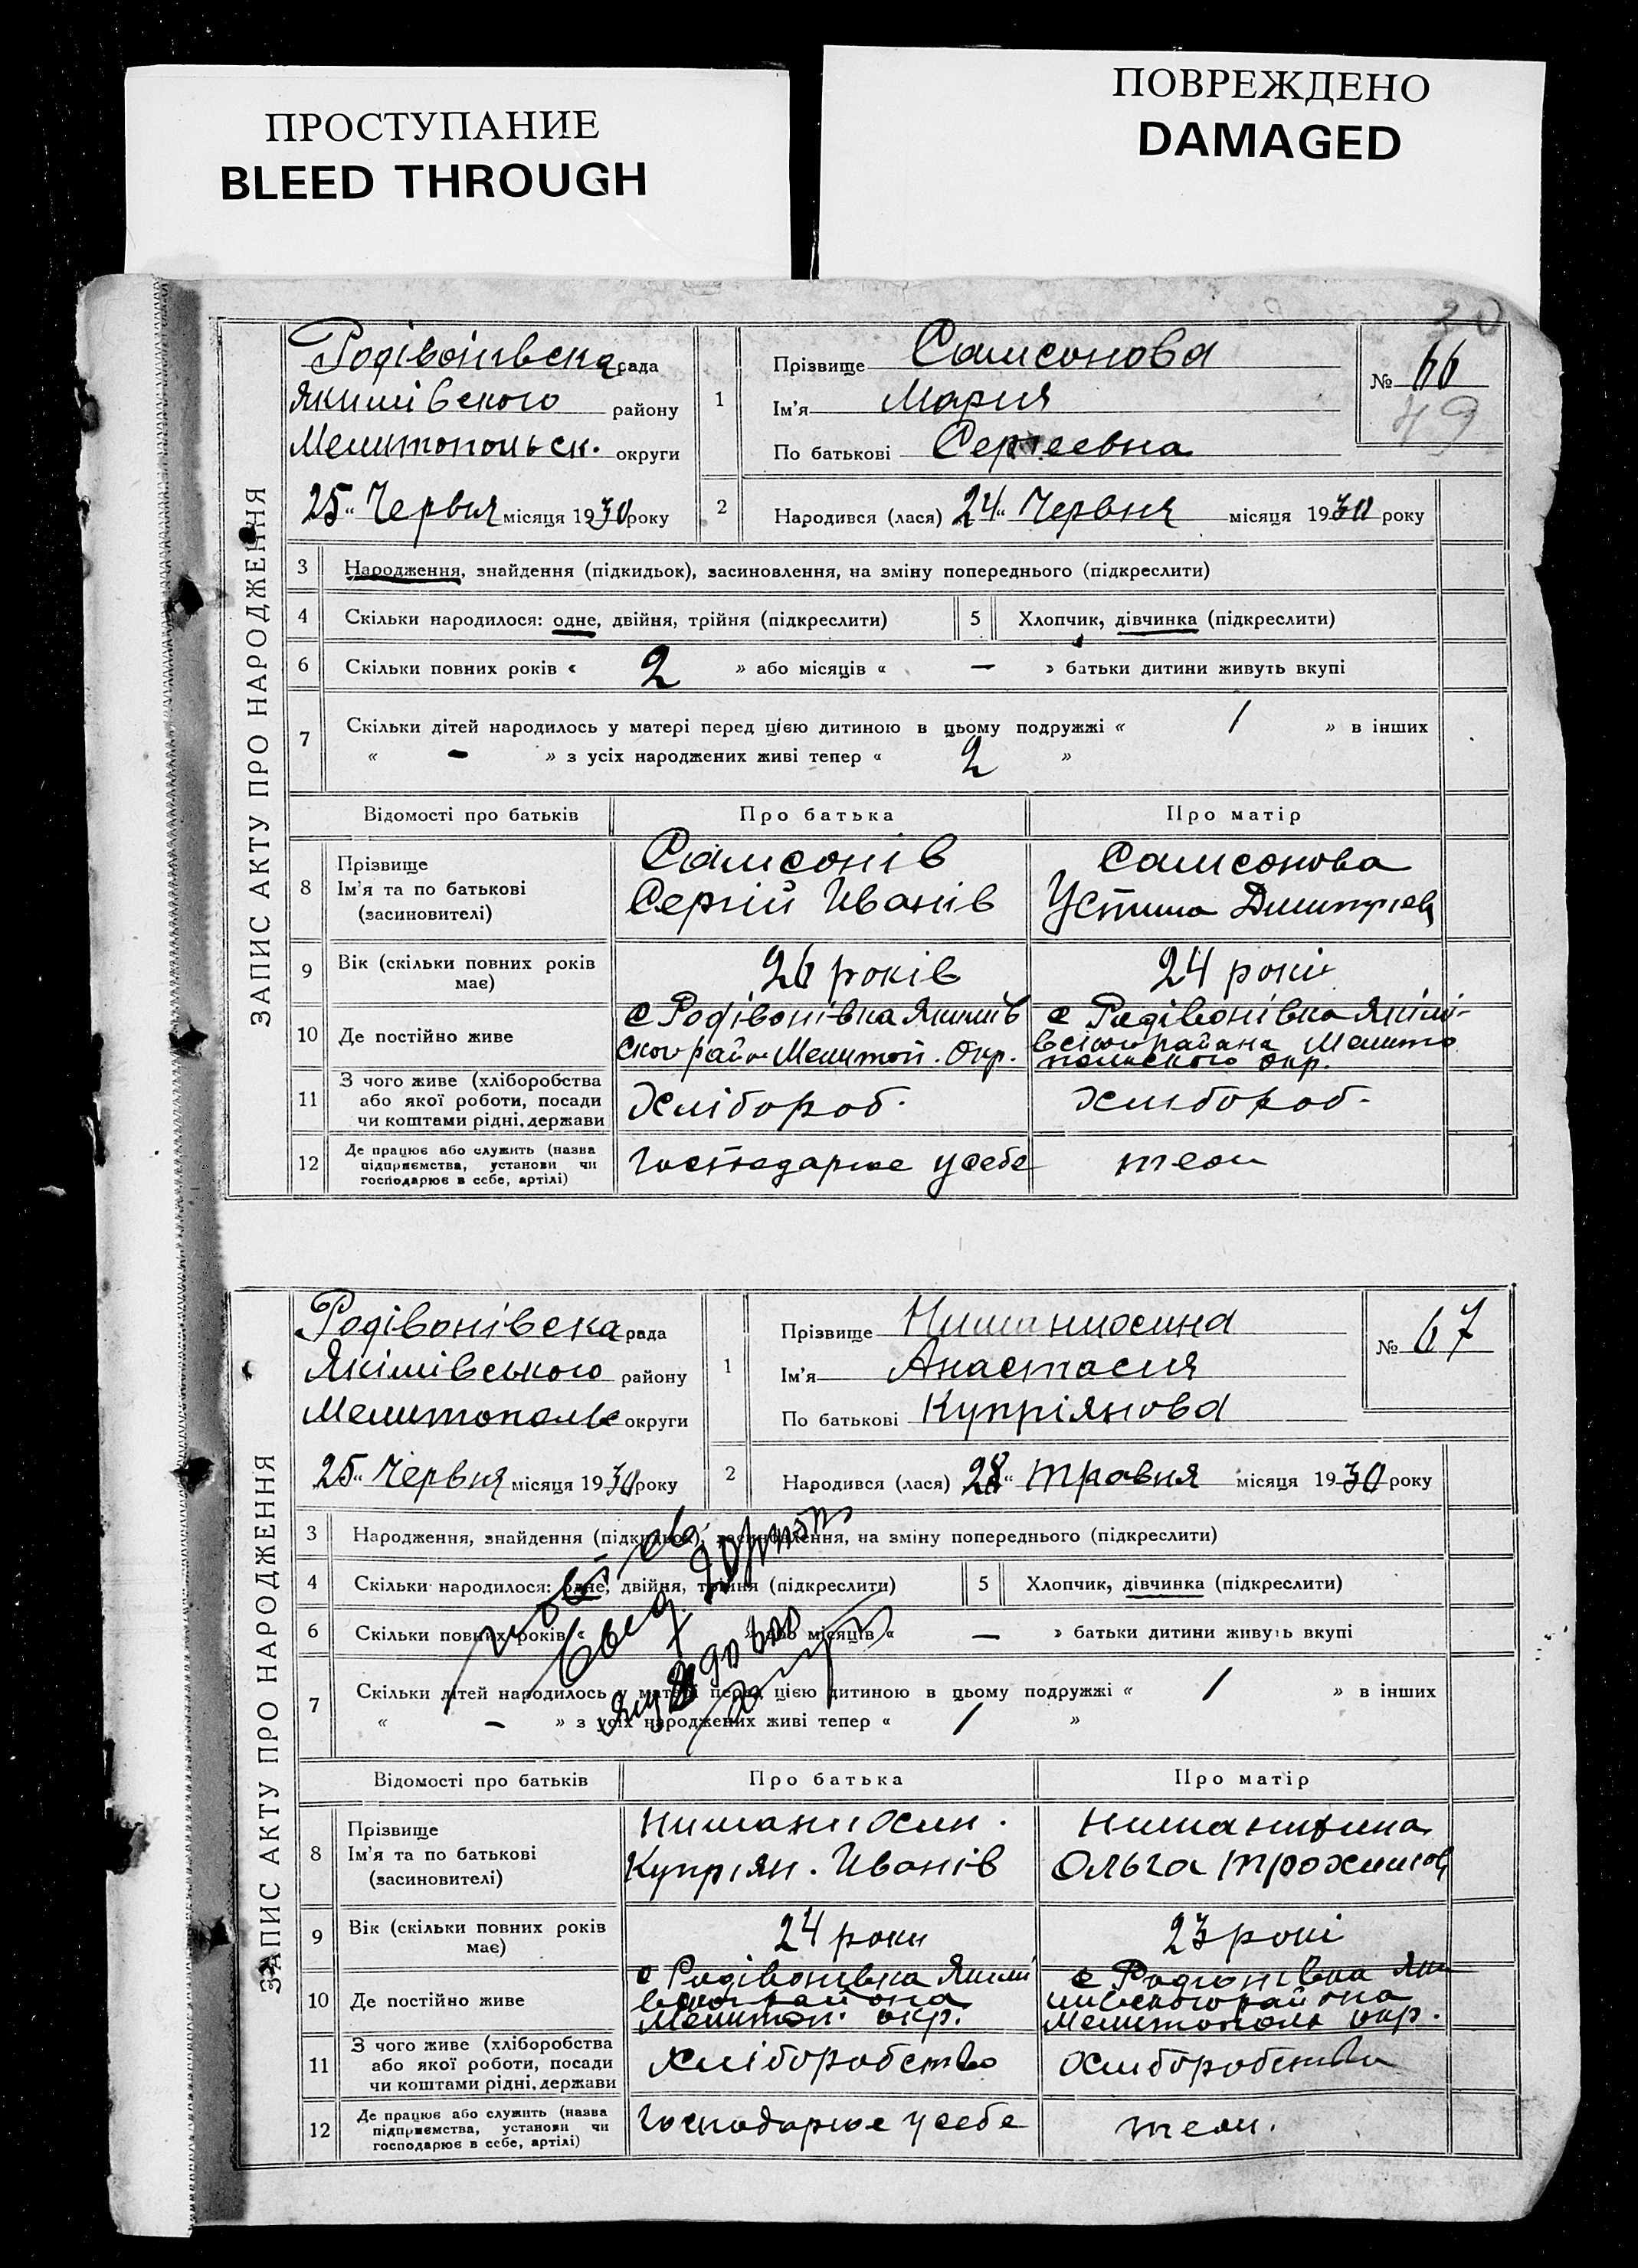 ПРОСТУПАНИЕ
BLEED THROUGH
ПОВРЕЖДЕНО
DAMAGED
20
ЗАПИС АКТУ ПРО НАРОДЖЕННЯ
Родівонівска рада
Якимівского району
Мелитопольск. округи
25 " Червня місяця 1930 року
1 Прізвище Самсонова
Ім'я Мария
По батькові Сергеевна
№ 66
49
2 Народився (лася) 24 " Червня місяця 1930 року
3 Народження, знайдення (підкидьок), засиновлення, на зміну попереднього (підкреслити)
4 Скільки народилося: одне, двійня, трійня (підкреслити) 5 Хлопчик, дівчинка (підкреслити)
6 Скільки повних років « 2 » або місяців « — » батьки дитини живуть вкупі
7 Скільки дітей народилось у матері перед цією дитиною в цьому подружжі « 1 » в інших
« — » з усіх народжених живі тепер « 2 »
Відомості про батьків Про батька Про матір
8 Прізвище
Ім'я та по батькові
(засиновителі)
Самсонів
Сергій Иванів
Самсонова
Устина Димитриев
9 Вік (скільки повних років має) 26 років 24 роки
10 Де постійно живе
с Родівонівка Якимів
ског райн Мелитоп. Окр.
с Родівонівка Якімі-
вського района Мелито
польского окр.
11 З чого живе (хліборобства
або якої роботи, посади
чи коштами рідні, держави
Хлібороб.
Хлибороб.
12 Де працює або служить (назва
підприємства, установи чи
господарює в себе, артілі)
Господарює у себе
теж
ЗАПИС АКТУ ПРО НАРОДЖЕННЯ
Родівонівска рада
Якімівського району
Мелитополь округи
25 " Червня місяця 1930 року
1 Прізвище
Ім'я Анастасия
По батькові Купріянова
№ 67
2 Народився (лася) 28 " травня місяця 1930 року
3 Народження, знайдення (підкидьок), засиновлення, на зміну попереднього (підкреслити)
4 Скільки народилося: одне, двійня, трійня (підкреслити) 5 Хлопчик, дівчинка (підкреслити)
6 Скільки повних років « » або місяців « — » батьки дитини живуть вкупі
7 Скільки дітей народилось у матері перед цією дитиною в цьому подружжі « 1 » в інших
« — » з усіх народжених живі тепер « 1 »
Відомості про батьків Про батька Про матір
8 Прізвище
Ім'я та по батькові
(засиновителі)
Купріян. Иванів
Ольга Трохимов
9 Вік (скільки повних років має) 24 роки 23 рокі
10 Де постійно живе
с Родівонівка Якимі
вског района
Мелитоп. окр.
с Родионівка Яки
мивского района
Мелитополь окр.
11 З чого живе (хліборобства
або якої роботи, посади
чи коштами рідні, держави
Хліборобство
Хлиборобство
12 Де працює або служить (назва
підприємства, установи чи
господарює в себе, артілі)
Господарює у себе
теж.